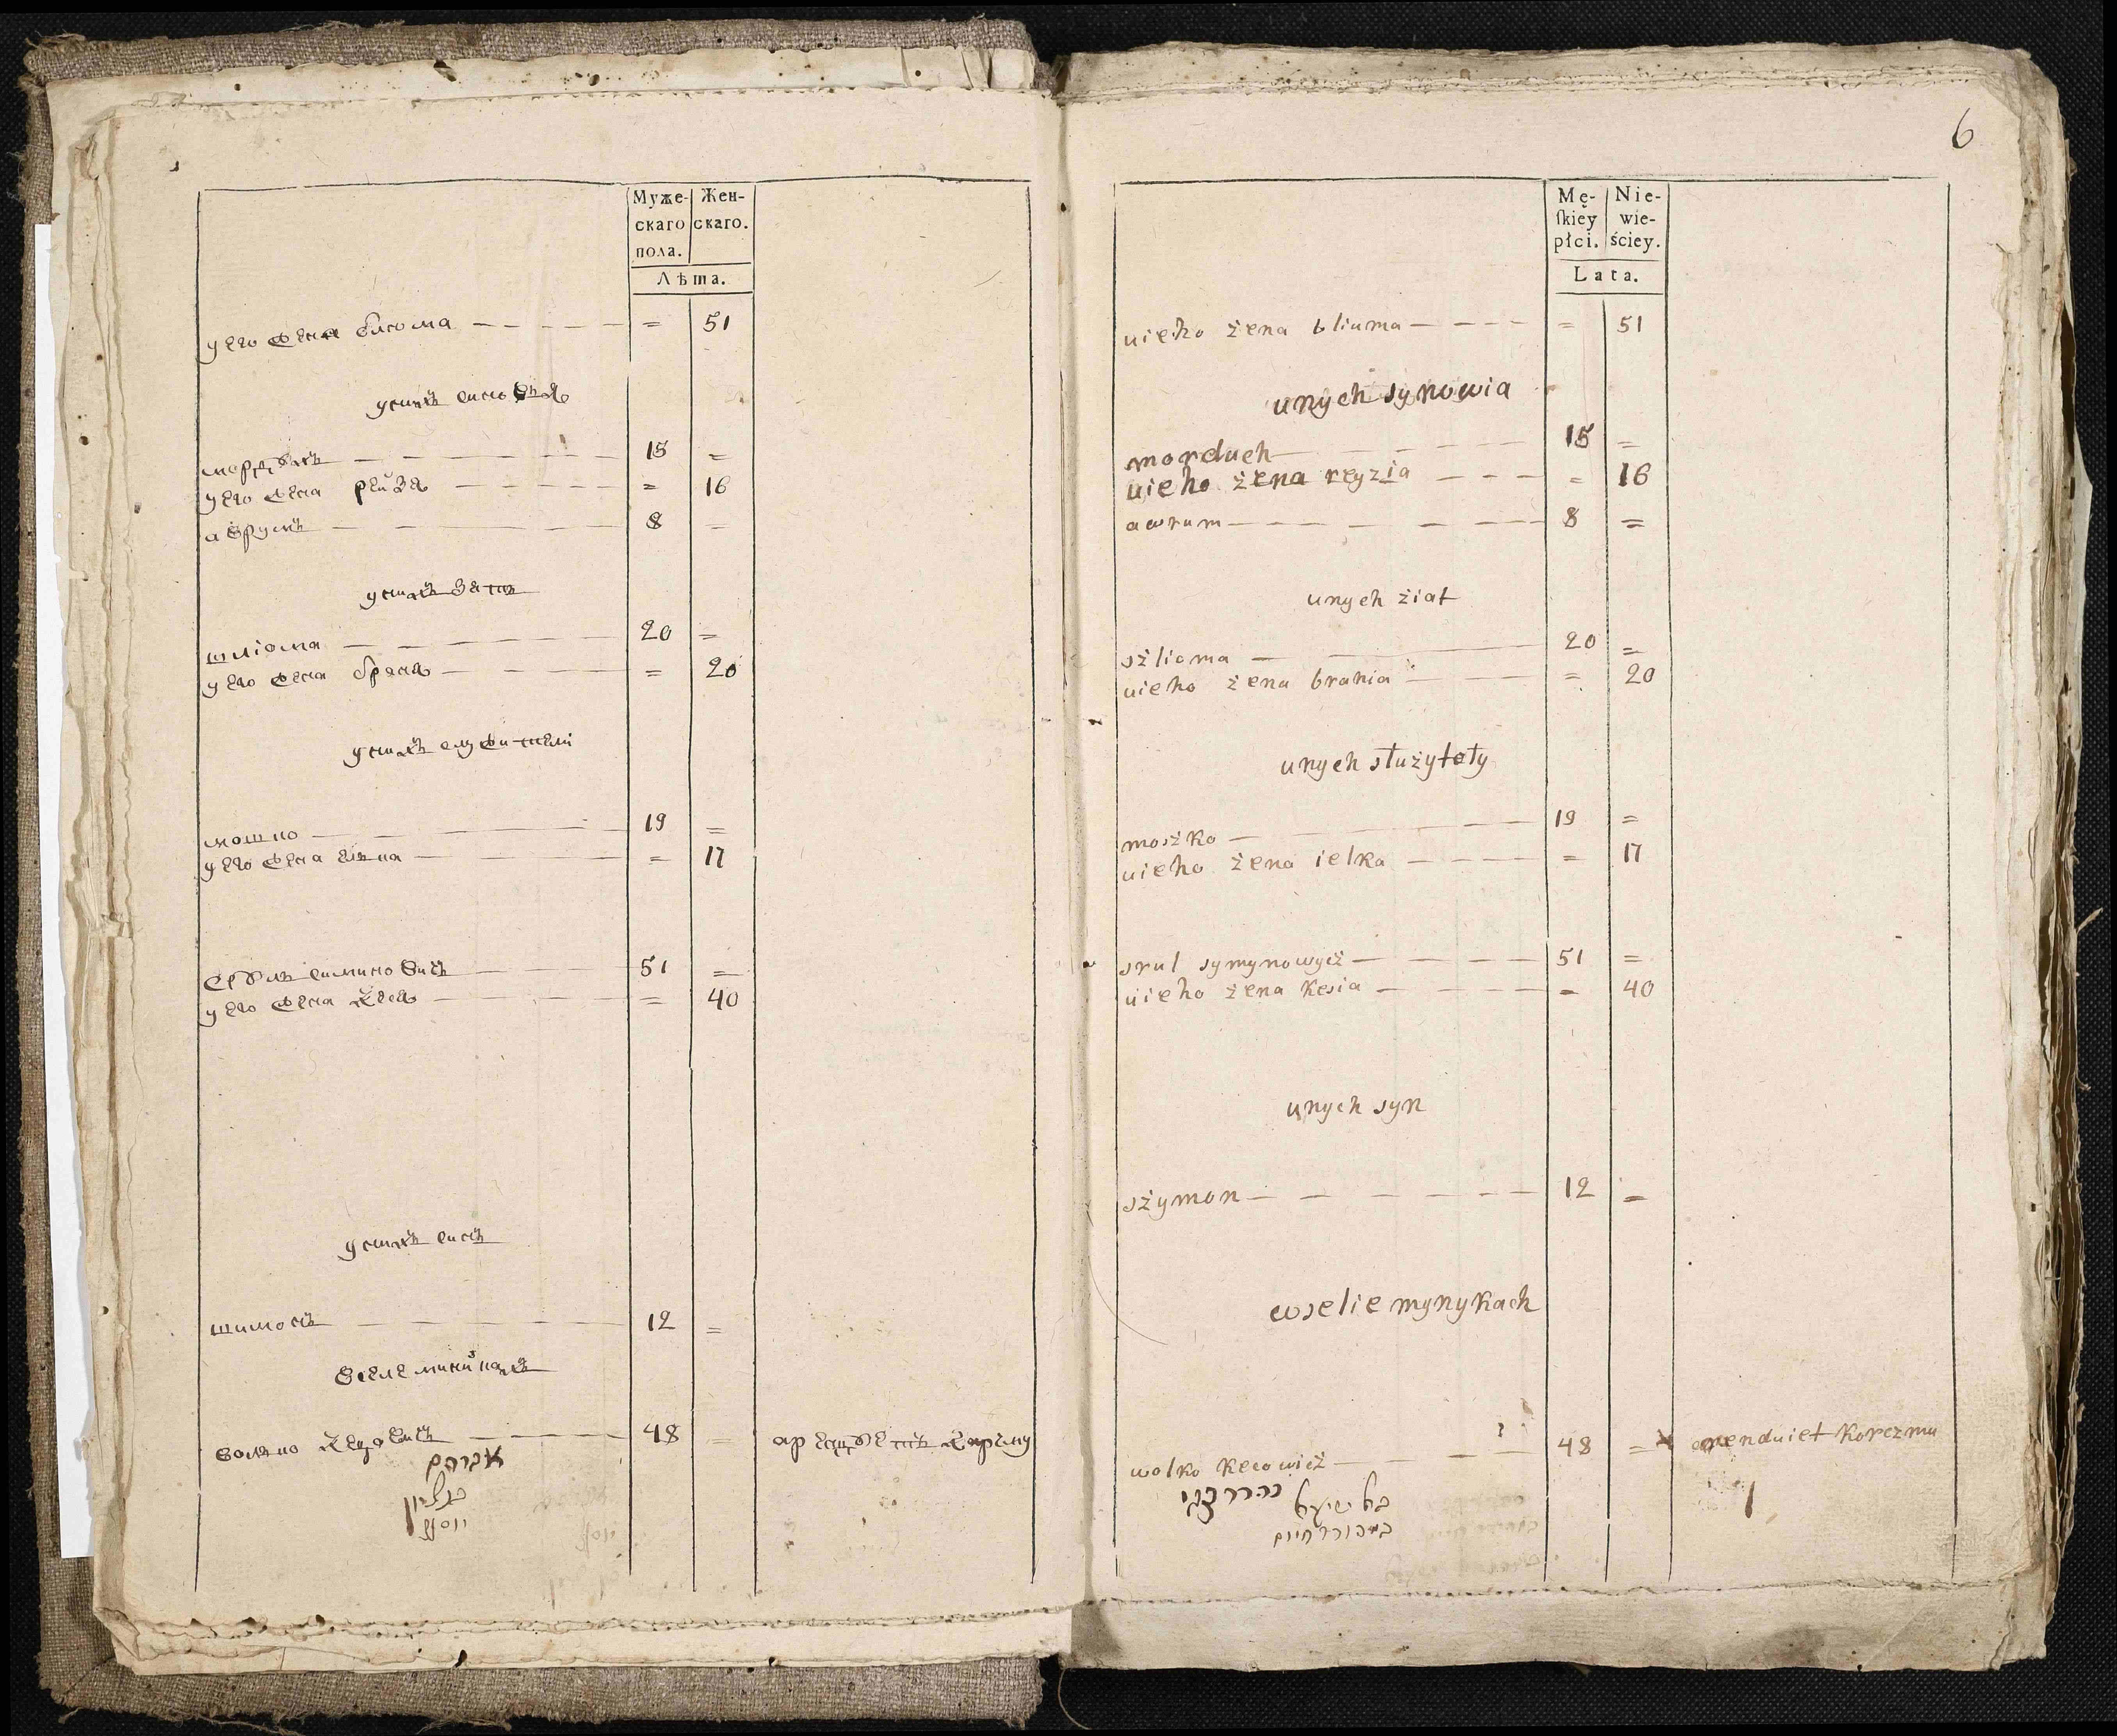 Муже-
скаго
пола.
Жен-
скаго.
Лѣта.
у его жена блюма — — — — — = 51
у нихъ сыновья
мордухъ — — — — — 15 =
у его жена рейзя — — — — — = 16
аврумъ — — — — — 8 =
у нихъ зять
шліома — — — — — 20 =
у его жена браня — — — — = 20
у нихъ служители
мошко — — — — — 19 =
у его жена елька — — — — = 17
сруль симиновичъ — — — 51 =
у его жена кеся — — — — = 40
у нихъ синъ
шимонъ — — — — — 12 =
в селе минийкахъ
волько — — — — 48 = арендуетъ карчму
אברהם
יוסף
6
Mę-
ſkiey
płci.
Nie-
wie-
ściey.
Lata.
uieho żena bliuma — — — — = 51
unych synowia
morduch — — — — 15 =
uieho żena reyzia — — — = 16
awrum — — — — — — 8 =
unych ziat
szlioma — — — 20 =
uieho żena brania — — — = 20
unych służyteły
moszko — — — — 19 =
uieho żena ielka — — — — = 17
srul symynowycz — — — — 51 =
uieho żena kesia — — — — = 40
unych syn
szymon — — — — — — 12 =
wselie mynykach
wolko — — — — 48 = arenduiet korczmu